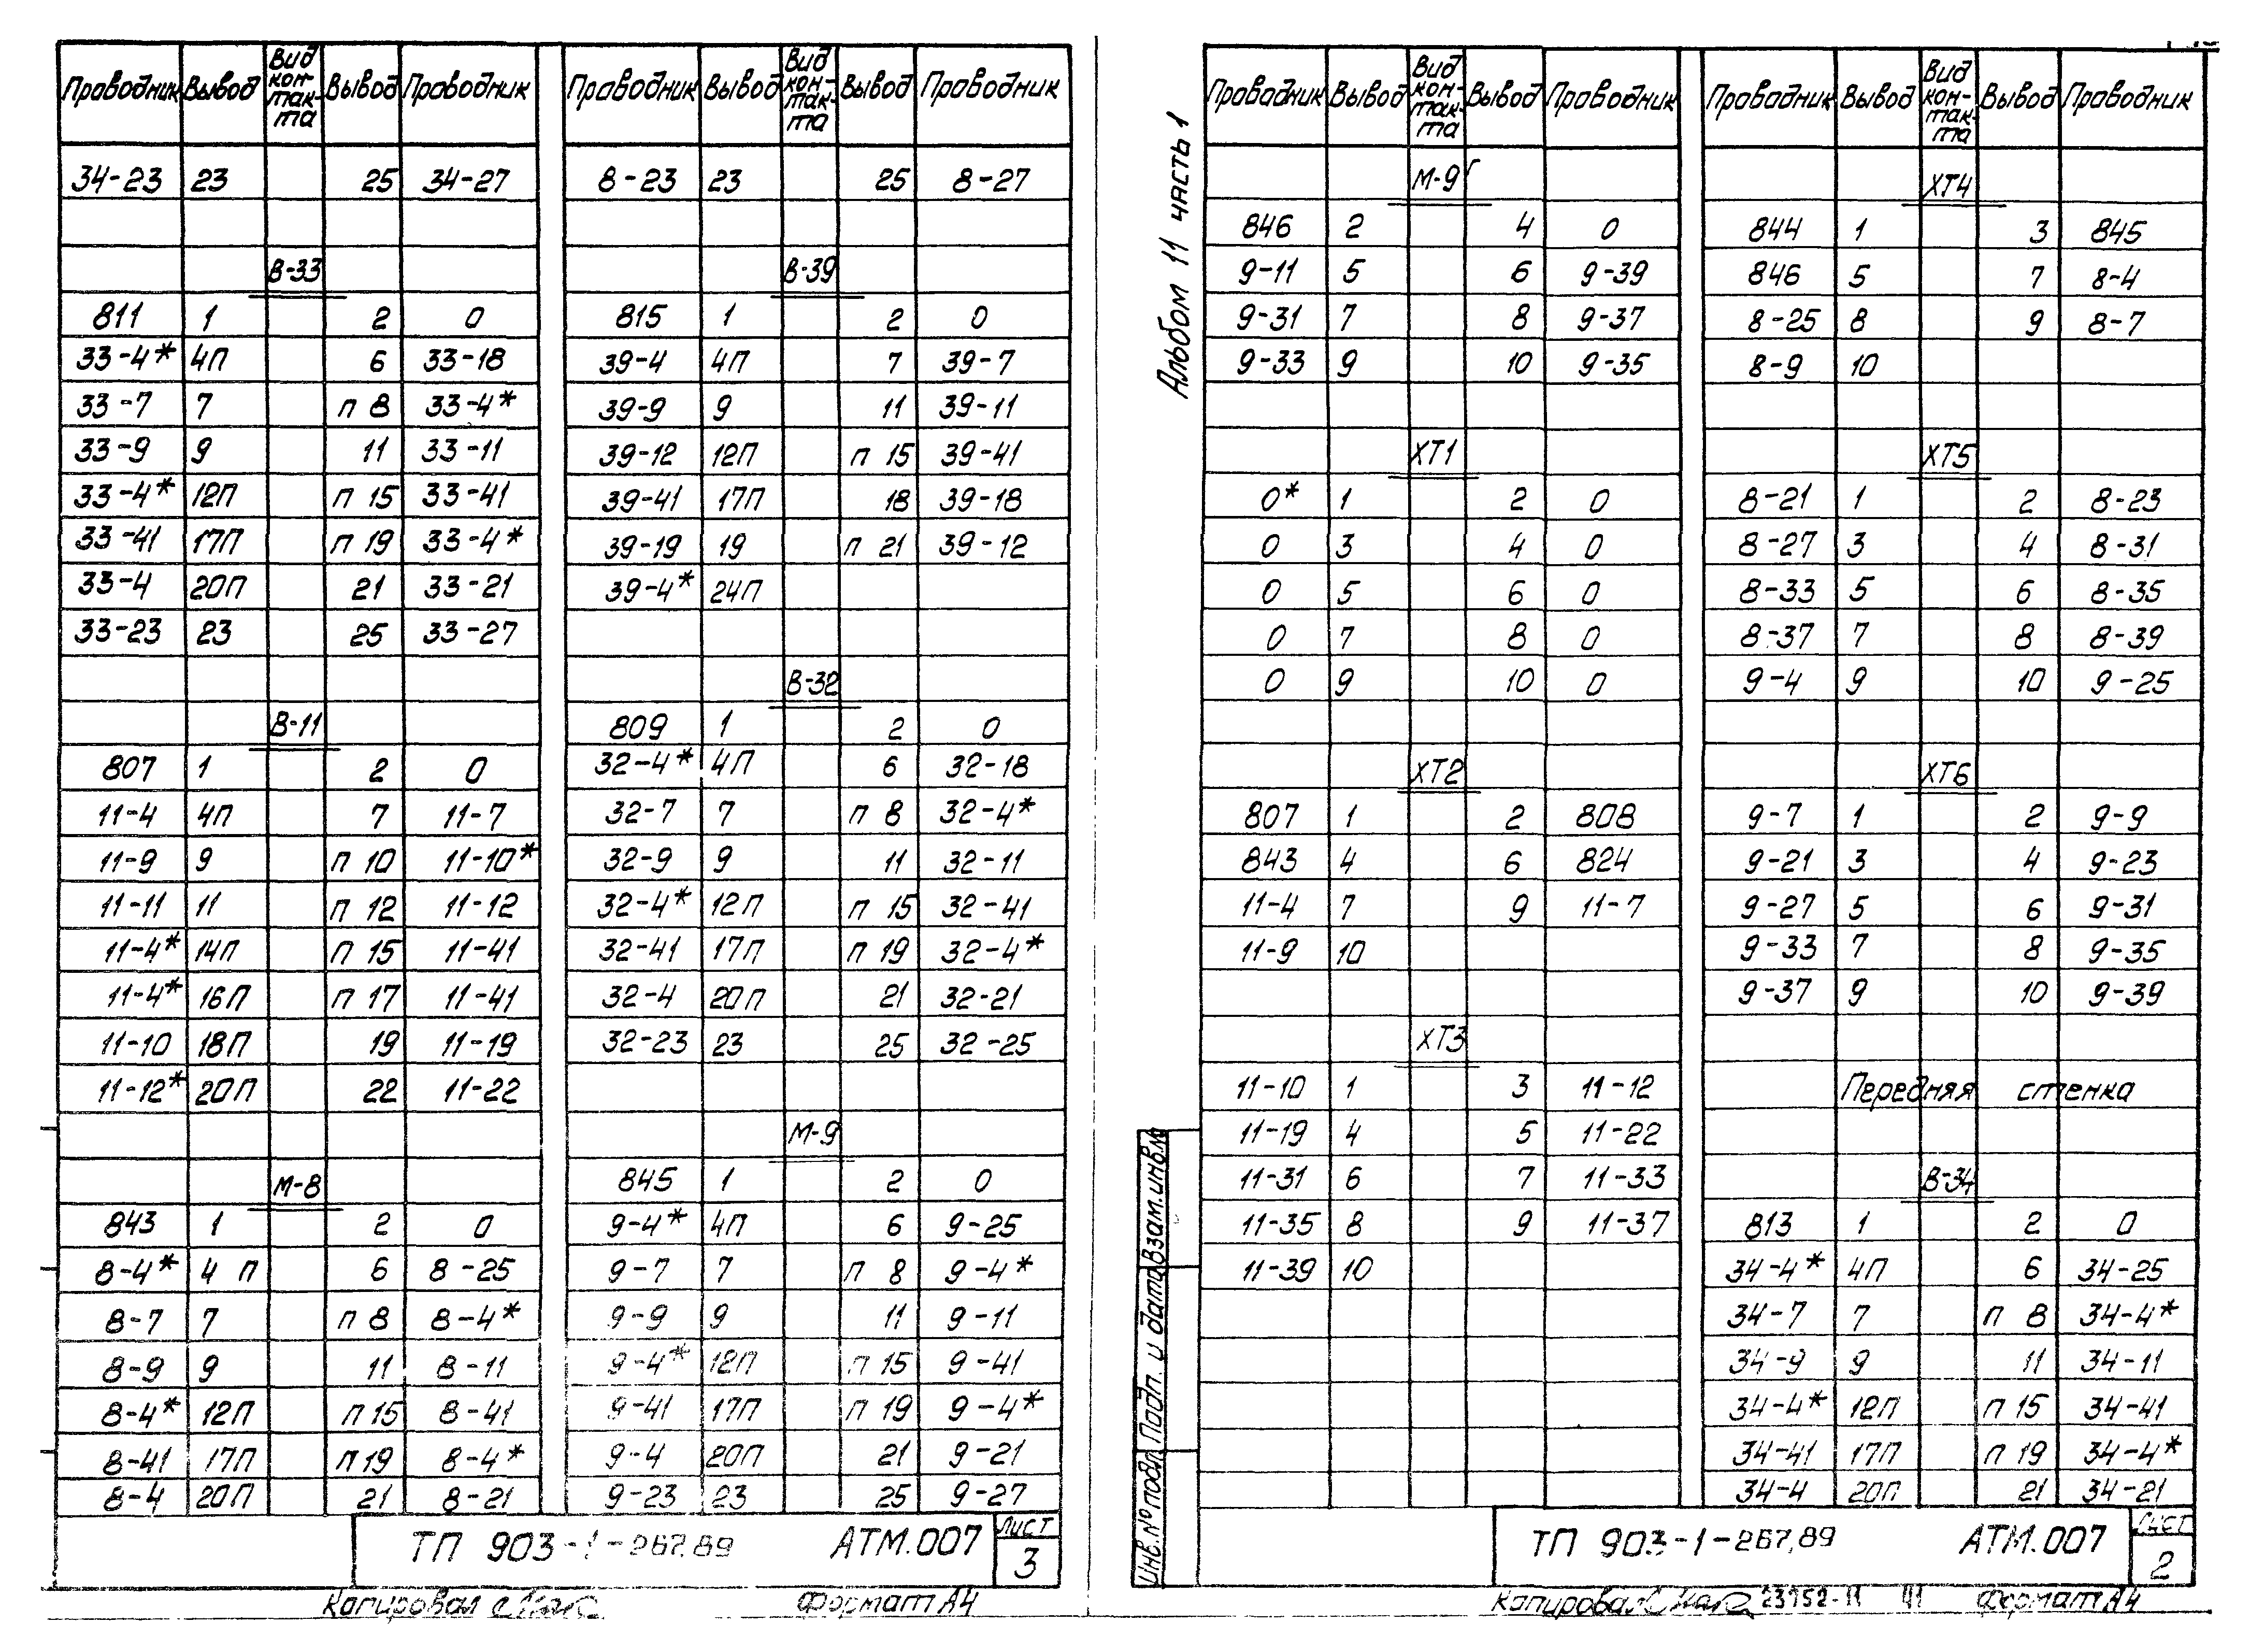 Проводник Вывод Вид кон- так- та Вывод Проводник
34-23 23 25 34-27
В-33
811 1 2 0
33-4* 4П 6 33-18
33-7 7 п 8 33-4*
33-9 9 11 33-11
33-4* 12П п 15 33-41
33-41 17П п 19 33-4*
33-4 20П 21 33-21
33-23 23 25 33-27
В-11
807 1 2 0
11-4 4П 7 11-7
11-9 9 п 10 11-10*
11-11 11 п 12 11-12
11-4* 14П п 15 11-41
11-4* 16П п 17 11-41
11-10 18П 19 11-19
11-12* 20П 22 11-22
М-8
843 1 2 0
8-4* 4 П 6 8-25
8-7 7 п 8 8-4*
8-9 9 11 8-11
8-4* 12П п 15 8-41
8-41 17П п 19 8-4*
8-4 20П 21 8-21
Проводник Вывод Вид кон- так- та Вывод Проводник
8-23 23 25 8-27
В-39
815 1 2 0
39-4 4П 7 39-7
39-9 9 11 39-11
39-12 12П п 15 39-41
39-41 17П 18 39-18
39-19 19 п 21 39-12
39-4* 24П
В-32
809 1 2 0
32-4* 4П 6 32-18
32-7 7 п 8 32-4*
32-9 9 11 32-11
32-4* 12П п 15 32-41
32-41 17П п 19 32-4*
32-4 20П 21 32-21
32-23 23 25 32-25
М-9
845 1 2 0
9-4* 4П 6 9-25
9-7 7 п 8 9-4*
9-9 9 11 9-11
9-4* 12П п 15 9-41
9-41 17П п 19 9-4*
9-4 20П 21 9-21
9-23 23 25 9-27
ТП 903-1-267.89 АТМ.007 Лист 3
Копировал Формат А4
Альбом 11 часть 1
Проводник Вывод Вид кон- так- та Вывод Проводник
М-9
846 2 4 0
9-11 5 6 9-39
9-31 7 8 9-37
9-33 9 10 9-35
ХТ1
0* 1 2 0
0 3 4 0
0 5 6 0
0 7 8 0
0 9 10 0
ХТ2
807 1 2 808
843 4 6 824
11-4 7 9 11-7
11-9 10
ХТ3
11-10 1 3 11-12
11-19 4 5 11-22
11-31 6 7 11-33
11-35 8 9 11-37
11-39 10
Проводник Вывод Вид кон- так- та Вывод Проводник
ХТ4
844 1 3 845
846 5 7 8-4
8-25 8 9 8-7
8-9 10
ХТ5
8-21 1 2 8-23
8-27 3 4 8-31
8-33 5 6 8-35
8-37 7 8 8-39
9-4 9 10 9-25
ХТ6
9-7 1 2 9-9
9-21 3 4 9-23
9-27 5 6 9-31
9-33 7 8 9-35
9-37 9 10 9-39
Передняя стенка
В-34
813 1 2 0
34-4* 4П 6 34-25
34-7 7 п 8 34-4*
34-9 9 11 34-11
34-4* 12П п 15 34-41
34-41 17П п 19 34-4*
34-4 20П 21 34-21
Инв.№ подл. Подп. и дата Взам.инв.№
ТП 903-1-267.89 АТМ.007 Лист 2
Копировал 23952-11 41 Формат А4